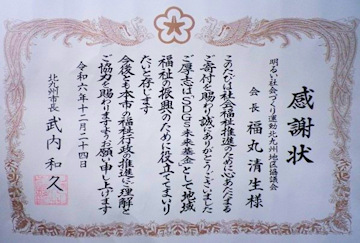 感謝状
明るい社会づくり運動北九州地区協議会
会長 福丸清生様
このたびは社会福祉推進のために心あたたまる
ご寄付を賜り誠にありがとうございました
ご厚志は「SDGs未来基金」として地域
福祉の振興のために役立ててまいり
たいと存じます
今後とも本市の福祉行政の推進にご理解と
ご協力を賜りますようお願い申し上げます
令和六年十二月二十四日
北九州市長 武内和久